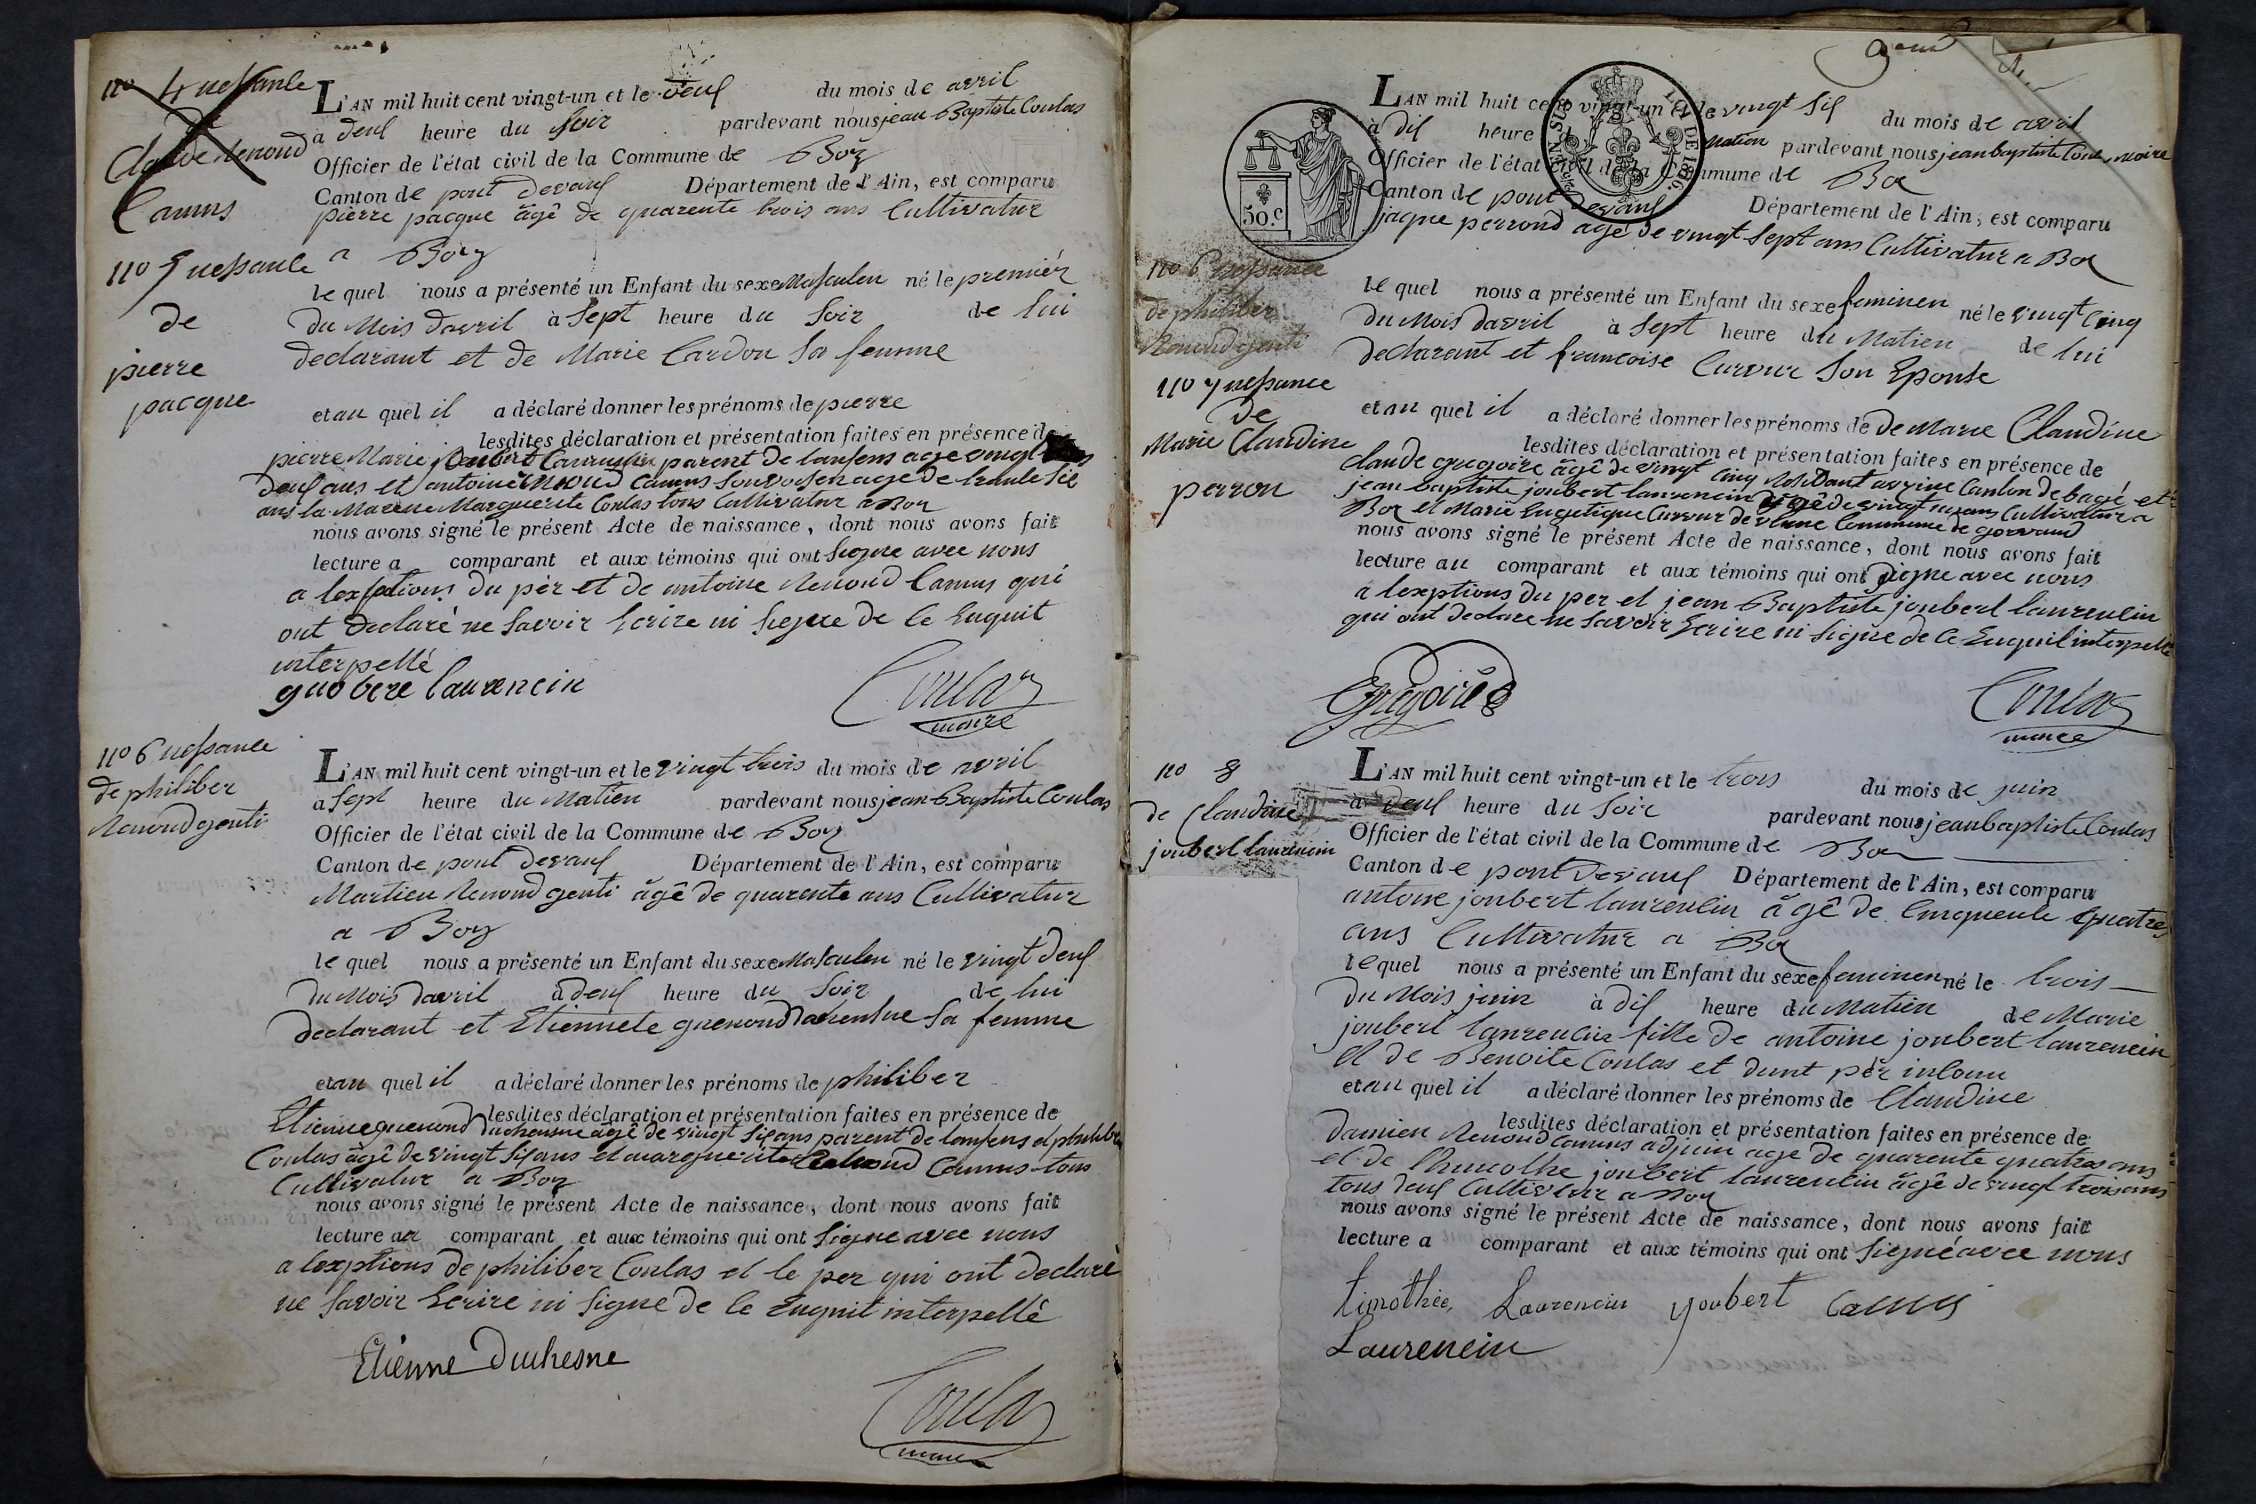 no 4 nessance
de
Claude Renoud
Camus
no 5 nessance
de
pierre
pacque
L'AN mil huit cent vingt-un et le deux du mois de avril
à deux heure du soir pardevant nous jean Baptiste Coulas
Officier de l'état civil de la Commune de Boz
Canton de pont devaux Département de l'Ain, est comparu
pierre pacque âgê de quarente trois ans Cultivatur
a Boz
le quel nous a présenté un Enfant du sexe Masculen né le premiér
du Mois davril à Sept heure du Soir de lui
declarant et de Marie Cardon Sa femme
et au quel il a déclaré donner les prénoms de pierre
lesdites déclaration et présentation faites en présence de
pierre Marie joubert Laurencin parent de lanfens age vingt
deux ans et antoine Renoud Camus Son voisen age de trante Six
ans la Marene Marguerite Coulas tous Cultivatur a Boz
nous avons signé le présent Acte de naissance, dont nous avons fait
lecture a comparant et aux témoins qui ont Signe avec nous
a lexseptions du pèr et de antoine Renoud Camus qui
ont Declaré ne Savoir Ecrire ni Signe de ce Enquit
interpellé
guobere laurencin
Coulas
maire
no 6 nessance
de philiber
Renoud genti
L'AN mil huit cent vingt-un et le vingt trois du mois de avril
à Sept heure du Matien pardevant nous jean Baptiste Coulas
Officier de l'état civil de la Commune de Boz
Canton de pont devaux Département de l'Ain, est comparu
Martien Renoud genti âgê de quarente ans Cultivatur
a Boz
le quel nous a présenté un Enfant du sexe Masculen né le vingt deux
du Mois davril à deux heure du Soir de lui
declarant et Etiennete guenoud duchensne Sa femme
et au quel il a déclaré donner les prénoms de philiber
lesdites déclaration et présentation faites en présence de
Etienne guenoud duchensne âgê de vingt Six ans parent de lanfens et philiber
Coulas âgê de vingt Six ans et marguerite Renoud Camus tous
Cultivatur a Boz
nous avons signé le présent Acte de naissance, dont nous avons fait
lecture au comparant et aux témoins qui ont Signe avec nous
a lexptions de philiber Coulas et le per qui ont declaré
ne Savoir Ecrire ni Signe de ce Enquit interpellé
Etienne Duchesne
Coulas
maire
50.C
LOI DE 1816.
no 6 nessance
de philiber
Renoud genti
no 7 nessance
de
Marie Claudine
perron
L'AN mil huit cent vingt-un et le vingt Six du mois de avril
à dix heure Matien pardevant nous jean baptiste Coulas maire
Officier de l'état civil de la Commune de Boz
Canton de pont devaux Département de l'Ain, est comparu
jaque perrond agé de vingt Sept ans Cultivatur a Boz
le quel nous a présenté un Enfant du sexe feminen né le vingt Cinq
du Mois davril à Sept heure du Matien de lui
declarant et francoise Curvur Son Eponse
et au quel il a déclaré donner les prénoms de de Marie Claudine
lesdites déclaration et présentation faites en présence de
Claude gregoire âgê de vingt Cinq Residant a Canton de bagé et
jean baptiste joubert laurencin âgê de vingt ans Cultivatur a
Boz et Marie Engelique Curvur de Commune de gorvaud
nous avons signé le présent Acte de naissance, dont nous avons fait
lecture au comparant et aux témoins qui ont Signe avec nous
a lexptions du per et jean Baptiste joubert laurencin
qui ont declare ne Savoir Ecrire ni Signe de ce Enquit interpellé
Grégoire
Coulas
maire
no 8
de Claudine
joubert laurencin
L'AN mil huit cent vingt-un et le trois du mois de juin
à deux heure du Soir pardevant nous jean baptiste Coulas
Officier de l'état civil de la Commune de Boz
Canton de pont Devaux Département de l'Ain, est comparu
antoine joubert laurencin âgê de Cinquente quatres
ans Cultivatur a Boz
le quel nous a présenté un Enfant du sexe feminen né le trois
du Mois juin à dix heure du Matien de Marie
joubert laurencin fille de antoine joubert laurencin
et de Benoite Coulas et dunt pèr inconu
et au quel il a déclaré donner les prénoms de Claudine
lesdites déclaration et présentation faites en présence de
damien Renoud Camus adjuin age de quarente quatres ans
et de thimothe joubert laurencin âgê de vingt trois ans
tous deux Cultivatur a Boz
nous avons signé le présent Acte de naissance, dont nous avons fait
lecture a comparant et aux témoins qui ont Signé avec nous
timothée Laurencin joubert Camus
Laurencin